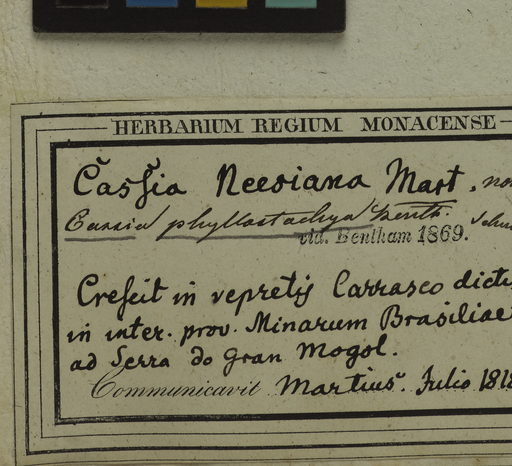 HERBARIUM REGIUM MONACENSE
Caſsia Neesiana Mart.
Cassia phyllostachya Benth.
vid. Bentham 1869.
Creſcit in vepretis Carrasco
in inter. prov. Minarum Brasiliae
ad Serra do Gran Mogol.
Communicavit Martius. Julio